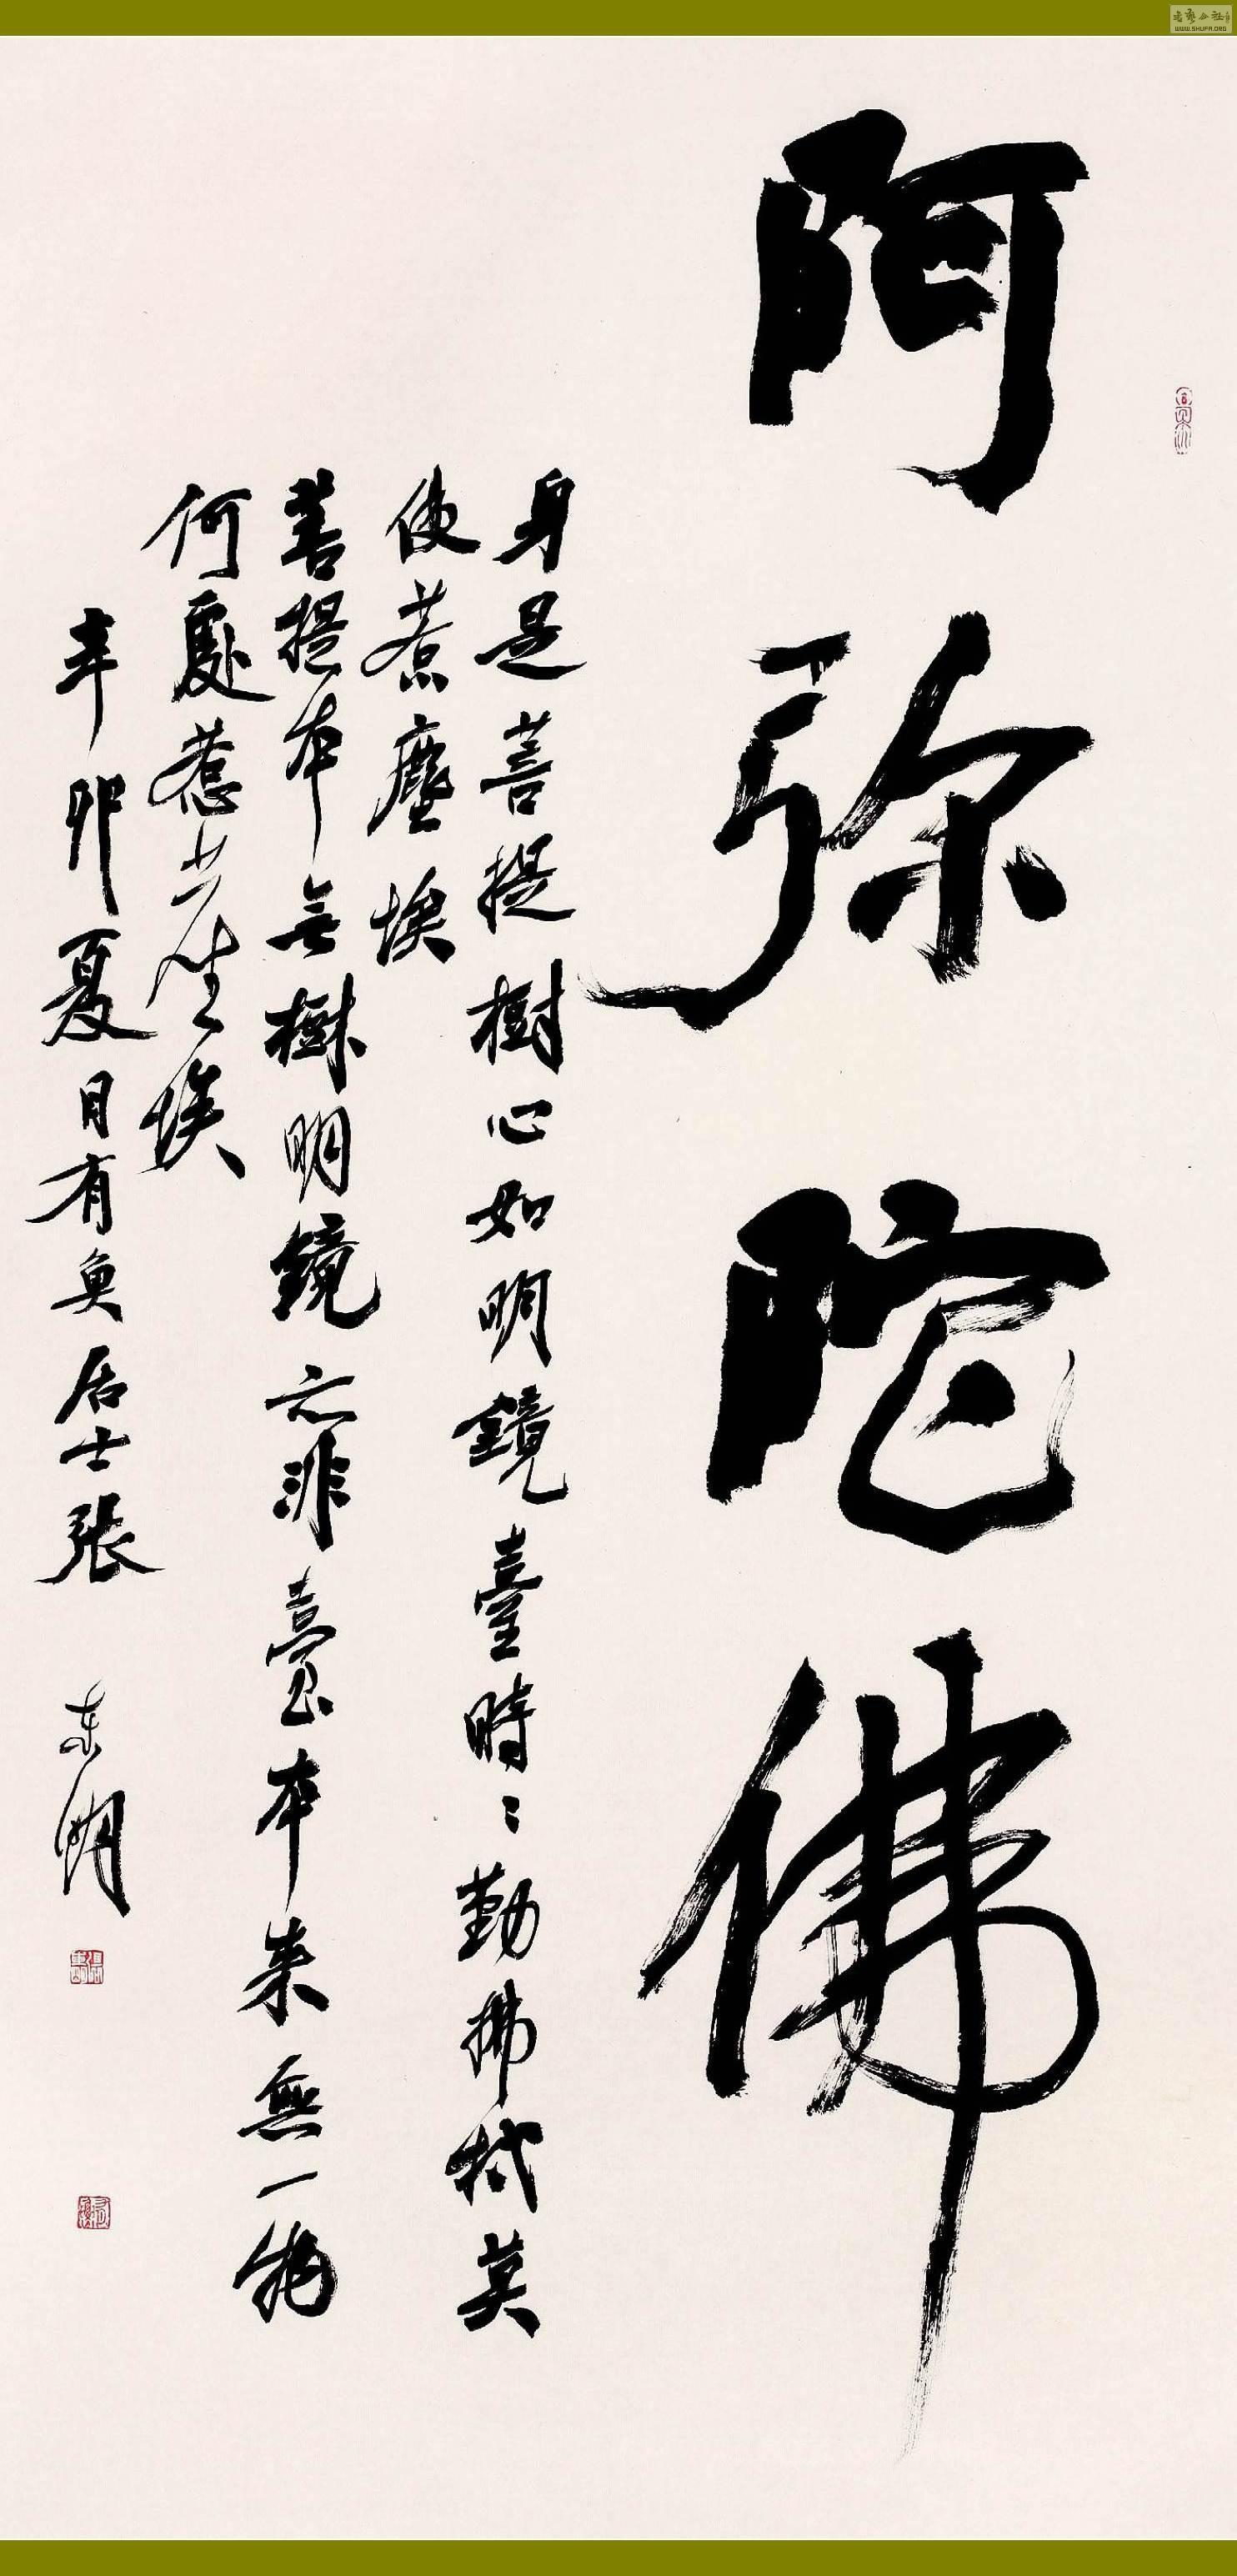 書藝公社
WWW.SHUFA.ORG
阿弥陀佛
身是菩提樹心如明鏡臺時〻勤拂拭莫
使惹塵埃
菩提本無樹明鏡亦非臺本来無一物
何處惹塵埃
辛卯夏月有魚居士張東明